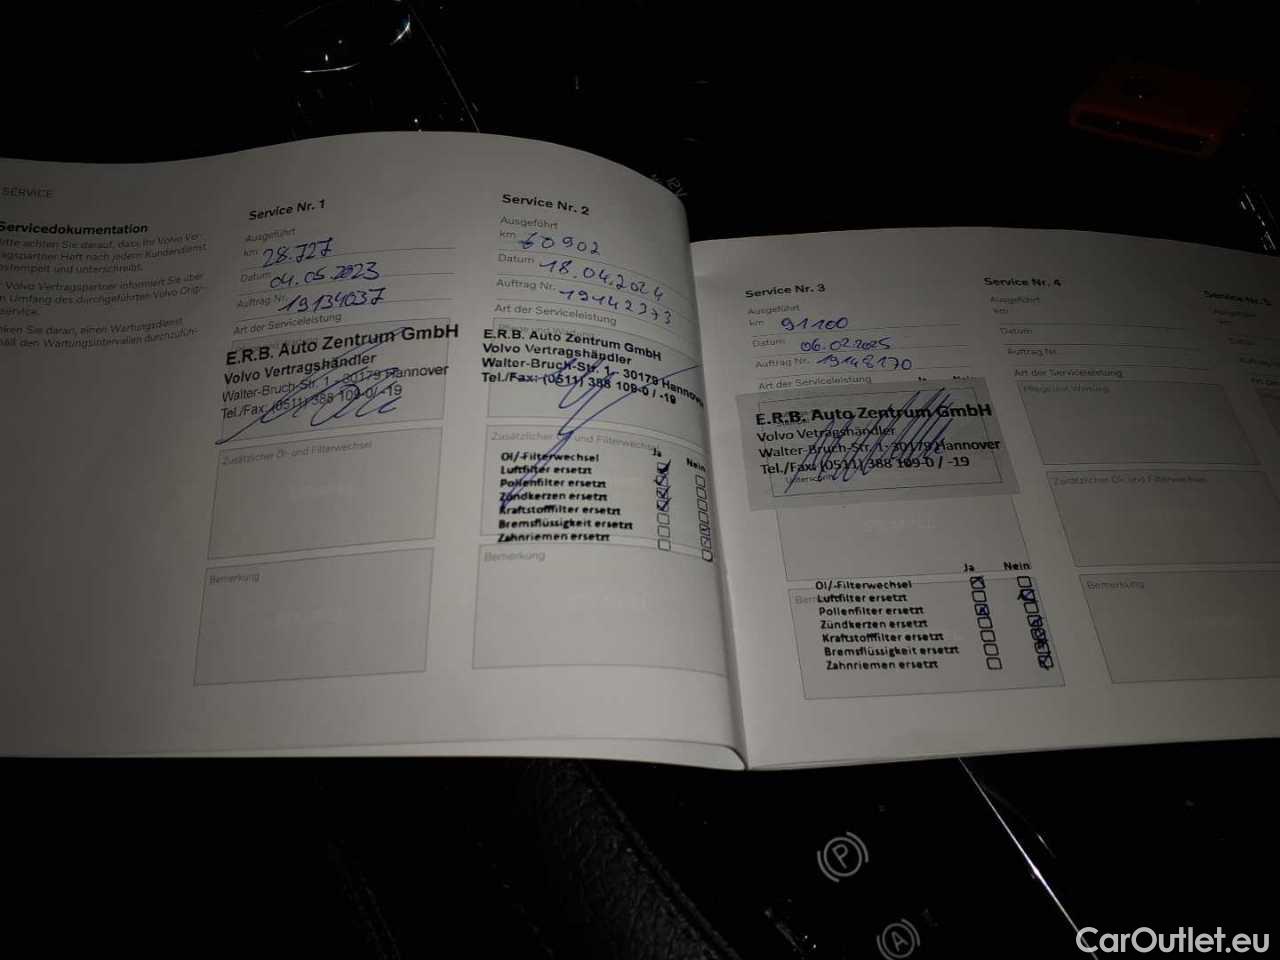 SERVICE
Servicedokumentation
Bitte achten Sie darauf, dass Ihr Volvo Ver-
tragspartner Heft nach jedem Kundendienst
abstempelt und unterschreibt.
Volvo Vertragspartner informiert Sie über
Umfang des durchgeführten Volvo Origi-
service.
Sie daran, einen Wartungsdienst
den Wartungsintervallen durchzufüh-
Service Nr. 1
Ausgeführt
km 28.727
Datum 04.05.2023
Auftrag Nr. 19134037
Art der Serviceleistung
E.R.B. Auto Zentrum GmbH
Volvo Vertragshändler
Walter-Bruch-Str. 1 - 30179 Hannover
Tel./Fax: (0511) 388 109-0/ -19
Zusätzlicher Öl- und Filterwechsel
Bemerkung
Service Nr. 2
Ausgeführt
km 60902
Datum 18.04.2024
Auftrag Nr. 19142373
Art der Serviceleistung
E.R.B. Auto Zentrum GmbH
Volvo Vertragshändler
Walter-Bruch-Str. 1- 30179 Hannover
Tel./Fax: (0511) 388 109-0 / -19
Zusätzlicher Öl- und Filterwechsel
Ja Nein
Öl/-Filterwechsel
Luftfilter ersetzt
Pollenfilter ersetzt
Zündkerzen ersetzt
Kraftstofffilter ersetzt
Bremsflüssigkeit ersetzt
Zahnriemen ersetzt
Bemerkung
Service Nr. 3
Ausgeführt
km 91100
Datum 06.02.2025
Auftrag Nr. 19148170
Art der Serviceleistung
E.R.B. Auto Zentrum GmbH
Volvo Vetragshändler
Walter-Bruch-Str. 1- 30179 Hannover
Tel./Fax: (0511) 388 109-0 / -19
Unterschrift
Ja Nein
Öl/-Filterwechsel
Luftfilter ersetzt
Pollenfilter ersetzt
Zündkerzen ersetzt
Kraftstofffilter ersetzt
Bremsflüssigkeit ersetzt
Zahnriemen ersetzt
Service Nr. 4
Ausgeführt
km
Datum
Auftrag Nr.
Art der Serviceleistung
Pflege und Wartung
Zusätzlicher Öl- und Filterwechsel
Bemerkung
Service Nr. 5
12V
P
A
CarOutlet.eu